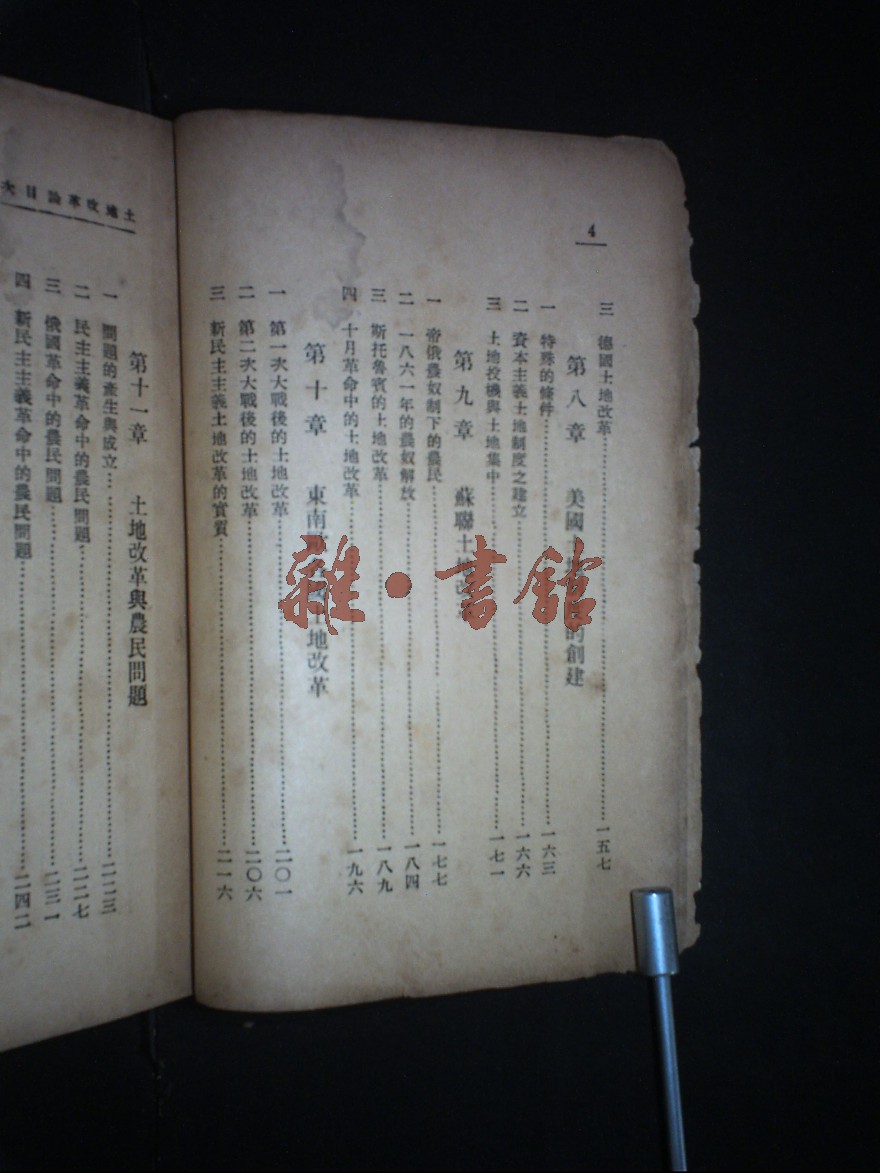 4
三 德國土地改革 一五七
第八章 美國土地 的創建
一 特殊的條件 一六三
二 資本主義土地制度之建立 一六六
三 土地投機與土地集中 一七一
第九章 蘇聯土地改革
一 帝俄農奴制下的農民 一七七
二 一八六一年的農奴解放 一八四
三 斯托魯賓的土地改革 一八九
四 十月革命中的土地改革 一九六
第十章 東南歐 土地改革
一 第一次大戰後的土地改革 二〇一
二 第二次大戰後的土地改革 二〇六
三 新民主主義土地改革的實質 二一六
土地改革論目次
第十一章 土地改革與農民問題
一 問題的產生與成立 二二三
二 民主主義革命中的農民問題 二二七
三 俄國革命中的農民問題 二三一
四 新民主主義革命中的農民問題 二四二
雜·書館